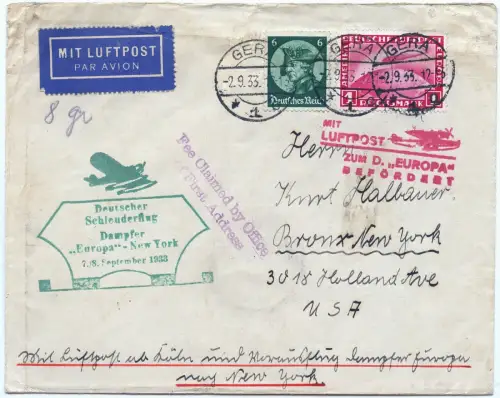 MIT LUFTPOST
PAR AVION
8 gr
GERA
-2.9.33.
6 6
Deutsches Reich
GERA
GERA
-2.9.33. 12-
1 REICHSMARK
MIT
LUFTPOST
ZUM D. „EUROPA"
BEFÖRDERT
Fee Claimed by Office
First Address
Deutscher
Schleuderflug
Dampfer
„Europa" - New York
7./8. September 1933
Herrn
Kurt Halbauer
Bronx New York
3018 Holland Ave
USA
Mit Luftpost ab Köln und Vorausflug Dampfer Europa
nach New York.